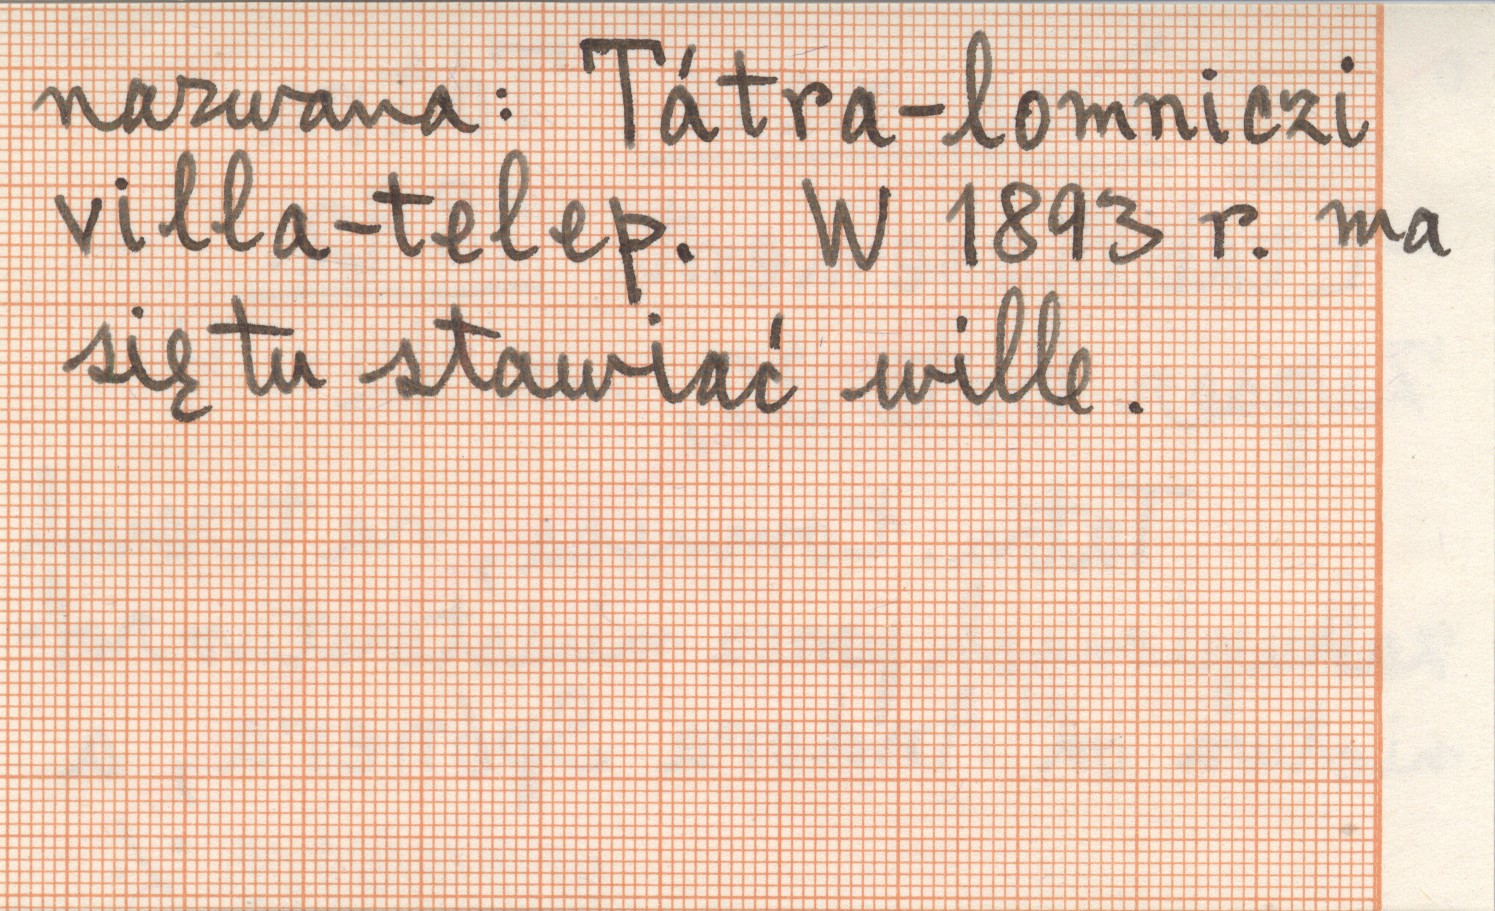 nazwana: Tátra-lomniczi
villa-telep. W 1893 r. ma
się tu stawiać wille.